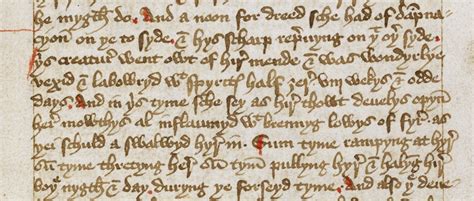 he mygth do. And a noon for dreed sche had of dāpna
cyon on þe to syde. & hys scharp repreuyng on þͭ oþͬ syde.
þis creatuͬ went owt of hir mende & was wondyrlye
vexid & labowryd wͭ spyritys half ȝer viij wekys & odde
days. And in þis tyme sche sey as hir thowt deuelys opyn
her mowthys al inflaumyd wͭ brennyng lowys of fyr as
þei schuld a swalwyd hyr in. Sum tyme rampyng at hyr
sū tyme thretyng her sū tym pullyng hyr & halyng hir
boþe nygth & day duryng þe forseyd tyme. And also þe deue